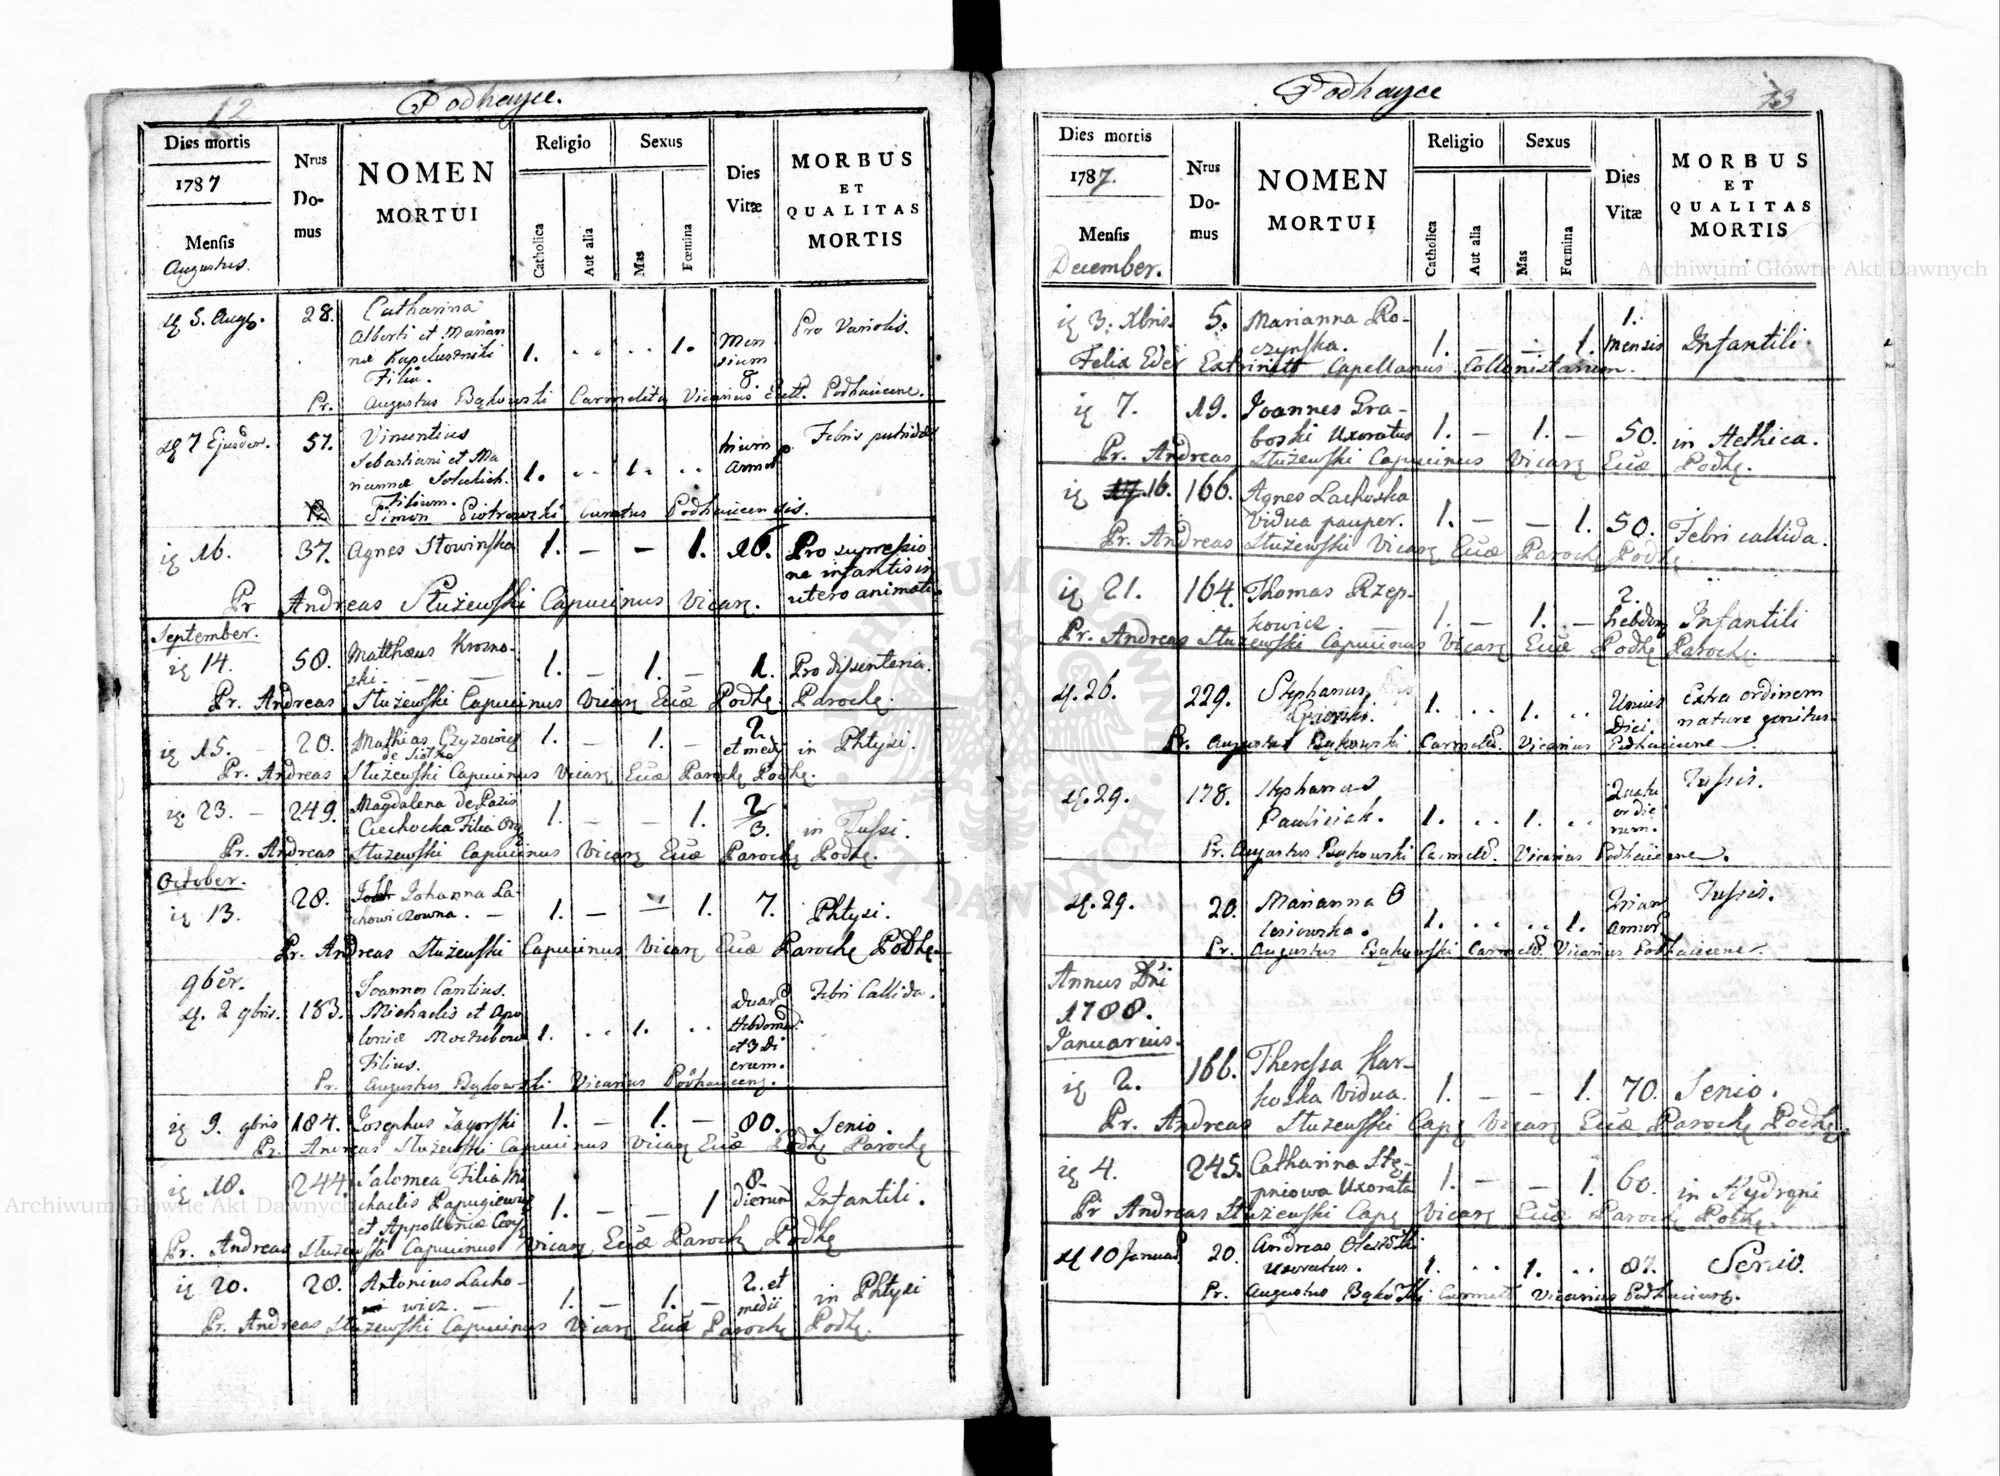 12
Podhayce.
Dies mortis
1787
Mensis
Augustus.
Nrus
Do-
mus
NOMEN
MORTUI
Religio
Catholica
Aut alia
Sexus
Mas
Fœmina
Dies
Vitæ
MORBUS
ET
QUALITAS
MORTIS
5. Aug. 28. Catharina
Alberti et Marian
næ Kapeluszniki
Filia. 1. .. .. 1. Men
sium
8. Pro Variolis.
Pr. Augustus Bąkowski Carmelita Vicarius Podhaicene.
7 Ejusdem. 57. Vincentius
Sebastiani et Ma
riannæ
Filium. 1. .. 1. .. trium
annor Febris putrida
Simon Piotrowski Curatus Podhaicensis.
16. 37. Agnes Słowinska 1. – – 1. 26. Pro supressio
ne infantis in
utero animati.
Pr Andreas Służewski Capucinus Vicarς.
September.
14. 58. Matthæus Krosno-
ski. 1. – 1. – 1. Pro disenteria.
Pr. Andreas Służewski Capucinus Vicarς Ecæ Podhς Parochς.
15. 20. Mathias Czyzowicz
1. – 1. – 2.
et medy in Phtysi.
Pr. Andreas Służewski Capucinus Vicarς Ecæ Parochς Podhς.
23. – 249. Magdalena de Pazis
Ciechocka Filia 1. – – 1. 2/3. in Tussi.
Pr. Andreas Służewski Capucinus Vicarς Ecæ Parochς Podhς.
October.
13. 28. Johanna La-
chowiczowna. – 1. – – 1. 7. Phtysi.
Pr. Andreas Służewski Capucinus Vicarς Ecæ Parochς Podhς.
9ber.
2 9bris. 183. Joannes Cantius.
Michaelis et Apo
loniæ
Filius. 1. .. 1. .. duar
Hebdoma
et 3 di
erum. Febri Callida.
Pr. Augustus Bąkowski Vicarius Podhaicenς.
9. 9bris 184. Josephus Zagorski 1. – 1. – 80. Senio.
Pr. Andreas Służewski Capucinus Vicarς Ecæ Podhς Parochς
18. 244. Salomea Filia Mi
chaelis Papugiewicz
et Appolloniæ 1. – – 1 8.
dierum Infantili.
Pr. Andreas Służewski Capucinus Vicarς Ecæ Parochς Podhς
20. 28. Antonius Lacho-
wicz. – 1. – 1. – 2. et
medii in Phtysi
Pr. Andreas Służewski Capucinus Vicarς Ecæ Parochς Podhς.
Podhayce
13
Dies mortis
1787.
Mensis
December.
Nrus
Do-
mus
NOMEN
MORTUI
Religio
Catholica
Aut alia
Sexus
Mas
Fœmina
Dies
Vitæ
MORBUS
ET
QUALITAS
MORTIS
3. Xbris. 5. Marianna Ro-
czynska. 1. – – 1. 1.
mensis Infantili.
Felix Eder Capellanus Collonistarum.
7. 19. Joannes Gra-
boski Uxoratus 1. – 1. – 50. in Hethica.
Pr. Andreas Służewski Capucinus Vicarς Ecæ Podhς.
16. 166. Agnes Lachoska
Vidua pauper. 1. – – 1. 50. Febri callida.
Pr. Andreas Służewski Vicarς Ecæ Parochς Podhς
21. 164. Thomas Rzep-
kowicz. 1. – 1. – 2.
hebdom Infantili
Pr. Andreas Służewski Capucinus Vicarς Ecæ Podhς Parochς.
26. 229. Stephanus
Gierski. 1. .. 1. .. Unius
Diei. Extra ordinem
nature genitus.
Pr. Augustus Bąkowski Carmeld. Vicarius Podhaicene.
29. 178. Stephanus
Pauliciak. 1. .. 1. .. Quatu
or die
rum. Tussis.
Pr. Augustus Bąkowski Carmeld. Vicarius Podhaicene.
29. 20. Marianna O
lesiewska. 1. .. .. 1. Trium
annor Tussis.
Pr. Augustus Bąkowski Carmeld. Vicarius Podhaicene.
Annus Dni
1788.
Januarius.
2. 166. Theressa Kar-
koska Vidua. 1. – – 1. 70. Senio.
Pr. Andreas Służewski Capς Vicarς Ecæ Parochς Podhς.
4. 245. Catharina Stę-
pniowa Uxorata 1. – – 1. 60. in Hydropi
Pr Andreas Służewski Capς Vicarς Ecæ Parochς Podhς.
10 Januar 20. Andreas
Uxoratus. 1. .. 1. .. 87. Senio.
Pr. Augustus Carmelit Vicarius Podhaicenς.
Archiwum Główne Akt Dawnych
Archiwum Główne Akt Dawnych
ARCHIWUM GŁÓWNE AKT DAWNYCH